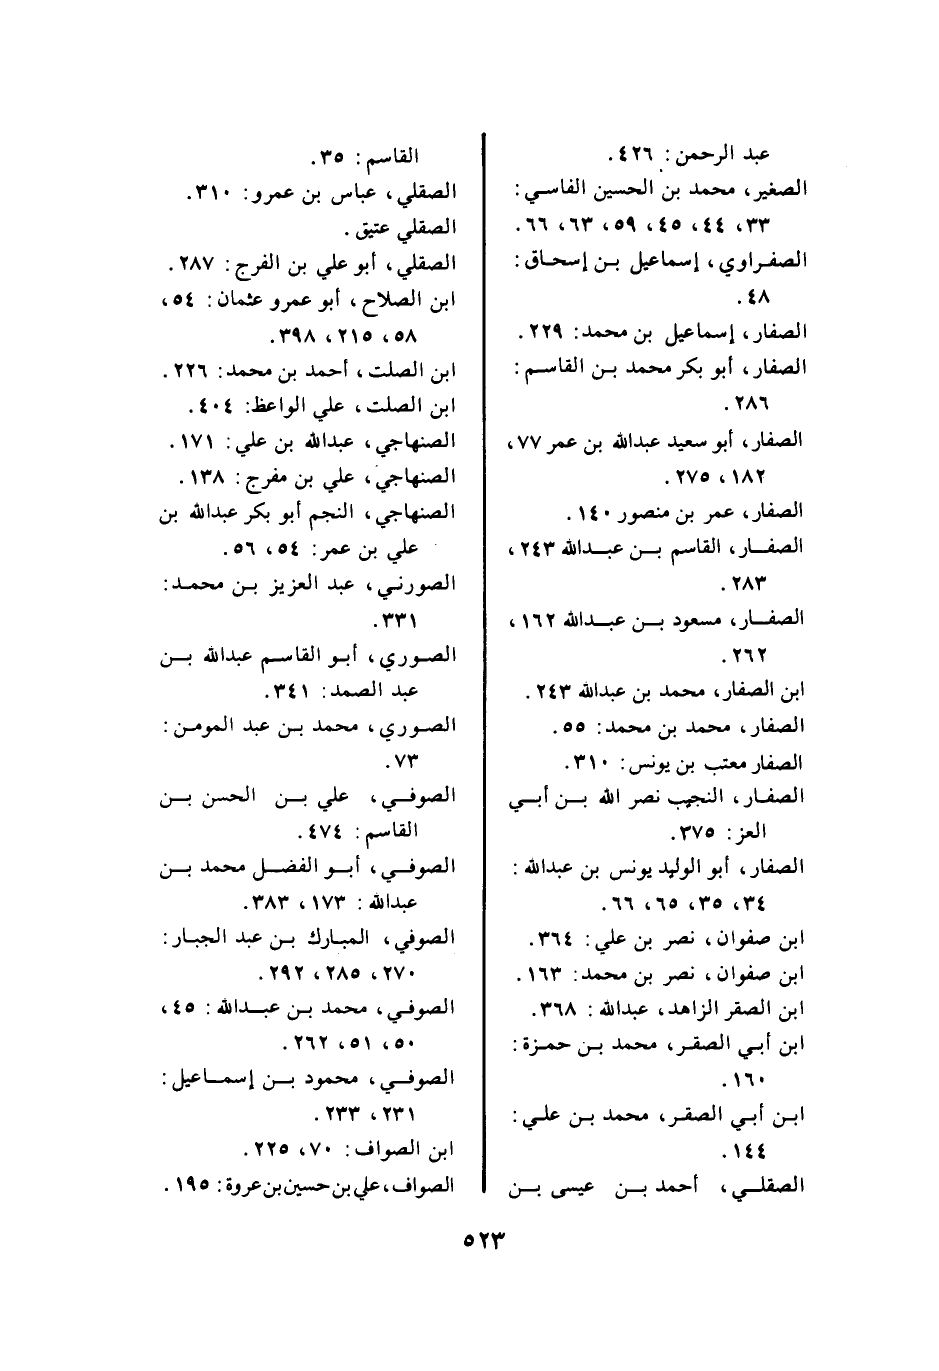 عبد الرحمن: ٤٢٦.
الصغير، محمد بن الحسين الفاسي:
٣٣، ٤٤، ٤٥، ٥٩، ٦٣، ٦٦.
الصفراوي، إسماعيل بن إسحاق:
٤٨.
الصفار، إسماعيل بن محمد: ٢٢٩.
الصفار، أبو بكر محمد بن القاسم:
٢٨٦.
الصفار، أبو سعيد عبدالله بن عمر ٧٧،
١٨٢، ٢٧٥.
الصفار، عمر بن منصور ١٤٠.
الصفار، القاسم بن عبدالله ٢٤٣،
٢٨٣.
الصفار، مسعود بن عبدالله ١٦٢،
٢٦٢.
ابن الصفار، محمد بن عبدالله ٢٤٣.
الصفار، محمد بن محمد: ٥٥.
الصفار معتب بن يونس: ٣١٠.
الصفار، النجيب نصر الله بن أبي
العز: ٣٧٥.
الصفار، أبو الوليد يونس بن عبدالله:
٣٤، ٣٥، ٦٥، ٦٦.
ابن صفوان، نصر بن علي: ٣٦٤.
ابن صفوان، نصر بن محمد: ١٦٣.
ابن الصقر الزاهد، عبدالله: ٣٦٨.
ابن أبي الصقر، محمد بن حمزة:
١٦٠.
ابن أبي الصقر، محمد بن علي:
١٤٤.
الصقلي، أحمد بن عيسى بن
القاسم: ٣٥.
الصقلي، عباس بن عمرو: ٣١٠.
الصقلي عتيق.
الصقلي، أبو علي بن الفرج: ٢٨٧.
ابن الصلاح، أبو عمرو عثمان: ٥٤،
٥٨، ٢١٥، ٣٩٨.
ابن الصلت، أحمد بن محمد: ٢٢٦.
ابن الصلت، علي الواعظ: ٤٠٤.
الصنهاجي، عبدالله بن علي: ١٧١.
الصنهاجي، علي بن مفرج: ١٣٨.
الصنهاجي، النجم أبو بكر عبدالله بن
علي بن عمر: ٥٤، ٥٦.
الصورني، عبد العزيز بن محمد:
٣٣١.
الصوري، أبو القاسم عبدالله بن
عبد الصمد: ٣٤١.
الصوري، محمد بن عبد المومن:
٧٣.
الصوفي، علي بن الحسن بن
القاسم: ٤٧٤.
الصوفي، أبو الفضل محمد بن
عبدالله: ١٧٣، ٣٨٣.
الصوفي، المبارك بن عبد الجبار:
٢٧٠، ٢٨٥، ٢٩٢.
الصوفي، محمد بن عبدالله: ٤٥،
٥٠، ٥١، ٢٦٢.
الصوفي، محمود بن إسماعيل:
٢٣١، ٢٣٣.
ابن الصواف: ٧٠، ٢٢٥.
الصواف، علي بن حسين بن عروة: ١٩٥.
٥٢٣